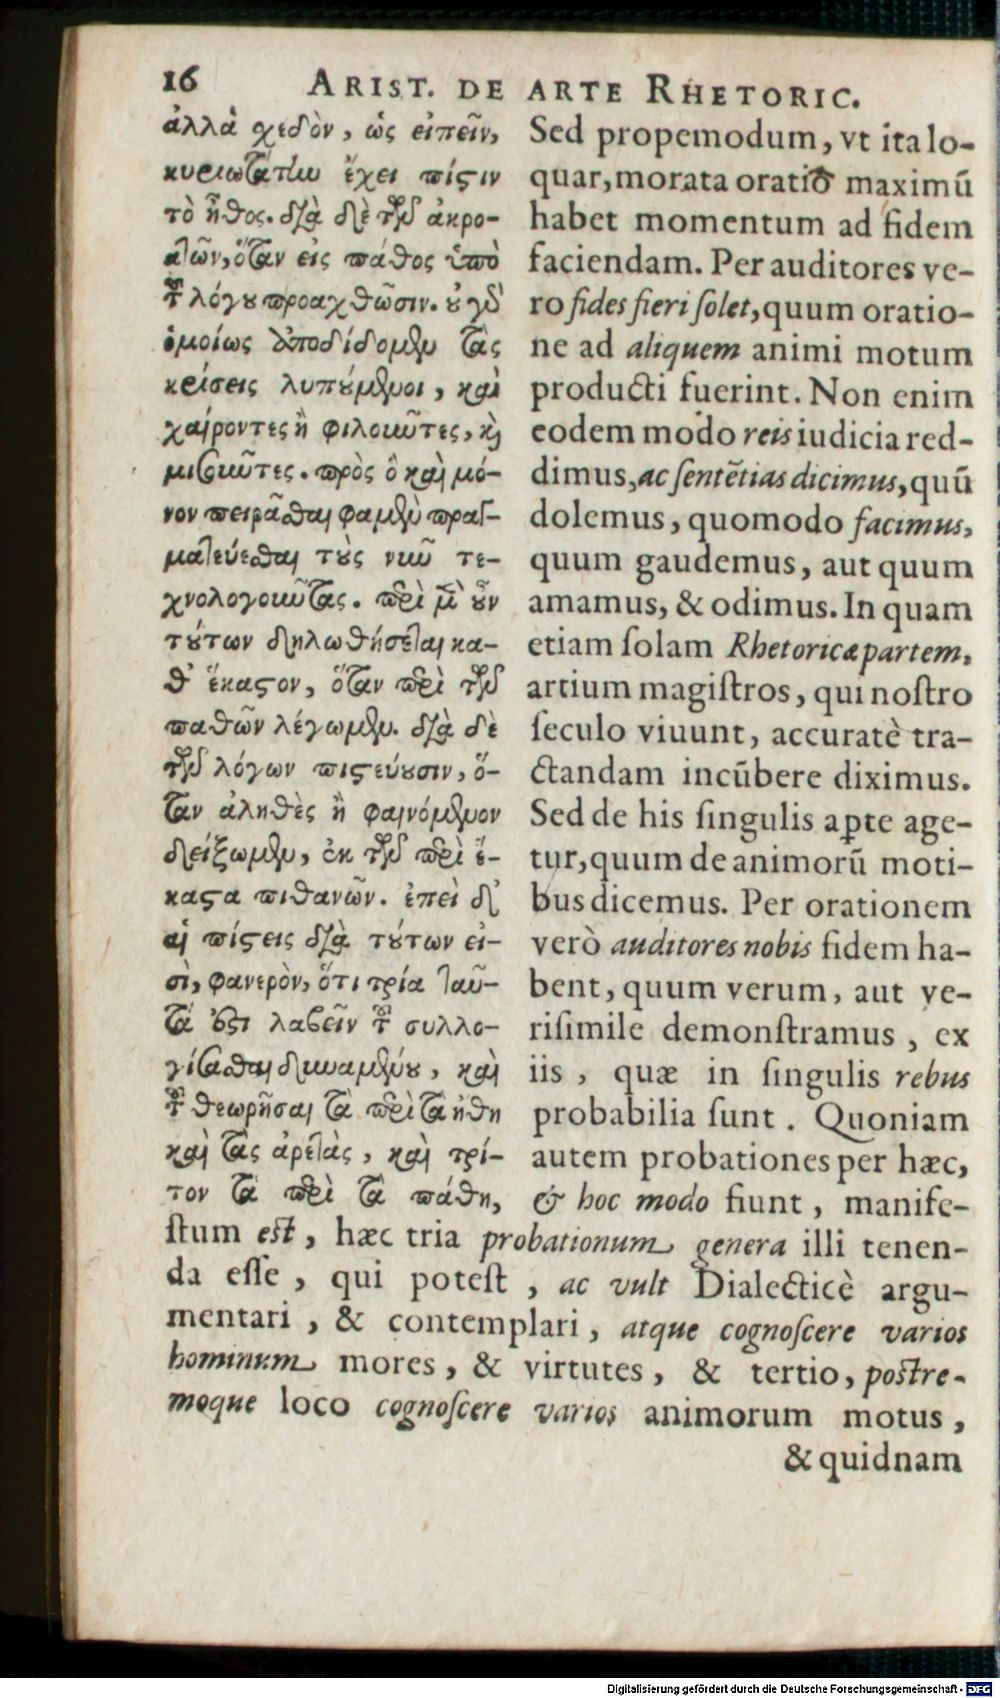 16 ARIST. DE ARTE RHETORIC.
ἀλλὰ σχεδὸν, ὡς εἰπεῖν,
κυριωτάτην ἔχει πίστιν
τὸ ἦθος. διὰ δὲ τῶν ἀκρο-
ατῶν, ὅταν εἰς πάθος ὑπὸ
τοῦ λόγου προαχθῶσιν. οὐ γὸ
ὁμοίως ἀποδίδομεν τὰς
κρίσεις λυπούμενοι, καὶ
χαίροντες ἢ φιλοῦντες, καὶ
μισοῦντες. πρὸς ὃ καὶ μό-
νον πειρᾶσθαι φαμὲν πραγ-
ματεύεσθαι τοὺς νῦν τε-
χνολογοῦντας. περὶ μὲν οὖν
τούτων δηλωθήσεται κα-
θ' ἕκαστον, ὅταν περὶ τῶν
παθῶν λέγωμεν. διὰ δὲ
τῶν λόγων πιστεύουσιν, ὅ-
ταν ἀληθὲς ἢ φαινόμενον
δείξωμεν, ἐκ τῶν περὶ ἕ-
καστα πιθανῶν. ἐπεὶ δ'
αἱ πίστεις διὰ τούτων εἰ-
σὶ, φανερὸν, ὅτι τρία ταῦ-
τά ἐστι λαβεῖν τοῦ συλλο-
γίζεσθαι δυναμένου, καὶ
τοῦ θεωρῆσαι τὰ περὶ τὰ ἤθη
καὶ τὰς ἀρετὰς, καὶ τρί-
τον τὰ περὶ τὰ πάθη,
Sed propemodum, vt ita lo-
quar, morata oratio maximū
habet momentum ad fidem
faciendam. Per auditores ve-
ro fides fieri solet, quum oratio-
ne ad aliquem animi motum
producti fuerint. Non enim
eodem modo reis iudicia red-
dimus, ac sentētias dicimus, quū
dolemus, quomodo facimus,
quum gaudemus, aut quum
amamus, & odimus. In quam
etiam solam Rhetoricæ partem,
artium magistros, qui nostro
seculo viuunt, accuratè tra-
ctandam incūbere diximus.
Sed de his singulis aꝑte age-
tur, quum de animorū moti-
bus dicemus. Per orationem
verò auditores nobis fidem ha-
bent, quum verum, aut ve-
risimile demonstramus, ex
iis, quæ in singulis rebus
probabilia sunt. Quoniam
autem probationes per hæc,
& hoc modo fiunt, manife-
stum est, hæc tria probationum genera illi tenen-
da esse, qui potest, ac vult Dialecticè argu-
mentari, & contemplari, atque cognoscere varios
hominum mores, & virtutes, & tertio, postre-
moque loco cognoscere varios animorum motus,
& quidnam
Digitalisierung gefördert durch die Deutsche Forschungsgemeinschaft - DFG